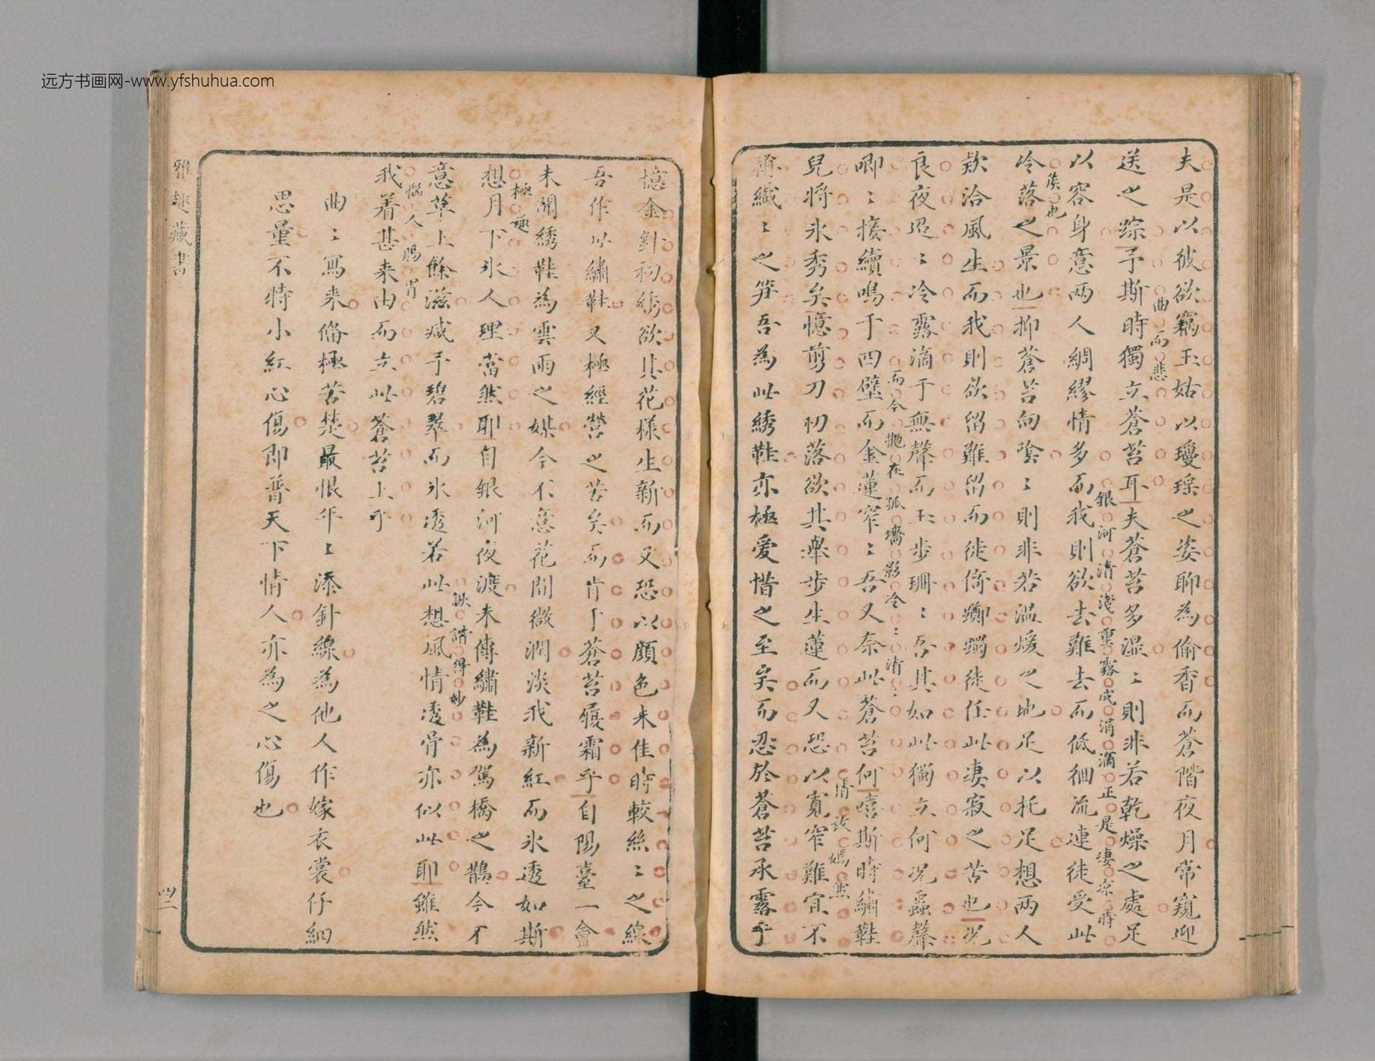 远方书画网-www.yfshuhua.com
夫是以彼欲竊玉姑以瓊瑤之姿聊為偷香而蒼階夜月常窺迎
送之踪予斯時獨立蒼苔耳夫蒼苔多濕〻則非若乾燥之處足
曲而悲
以容身意兩人綢繆情多而我則欲去難去而低徊流連徒受此
銀河清淺重露成涓滴正是凄凉時
冷落之景也抑蒼苔向陰〻則非若溫煖之地足以托足想兩人
族也
欵洽風生而我則欲留難留而徒倚躑躅徒任此凄寂之苦也况
良夜迢〻冷露滴于無聲而玉步珊〻吾其如此獨立何况蟲聲
唧〻接續鳴于四壁而金蓮窄〻吾又奈此蒼苔何嘻斯時繡鞋
而今拋在孤墻影冷〻清〻
兒將氷秀矣憶剪刀初落欲其舉步生蓮而又恐以寬窄難宜不
情致嫣然
爺纖〻之笋吾為此綉鞋亦極愛惜之至矣而忍於蒼苔承露乎
憶金針初綉欲其花樣生新而又恐以顏色未佳時較絲〻之線
吾作此繡鞋又極經營之苦矣而肯于蒼苔履霜乎自陽臺一會
未聞綉鞋為雲雨之媒今不意花間微潤淡我新紅而氷透如斯
想月下氷人理當然耶自銀河夜渡未傳繡鞋為駕橋之鵲今不
極趣
意草上餘滋緘予碧翠而氷透若此想風情透骨亦似此耶雖然
諧得妙
我着甚來由而立此蒼苔上乎
惱人腸胃
曲〻寫來備極苦楚最恨年〻添針線為他人作嫁衣裳仔細
思量不特小紅心傷即普天下情人亦為之心傷也
雅趣藏書
四二